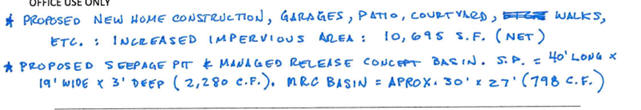 OFFICE USE ONLY
* PROPOSED NEW HOME CONSTRUCTION, GARAGES, PATIO, COURTYARD, WALKS,
ETC. : INCREASED IMPERVIOUS AREA : 10,695 S.F. (NET)
* PROPOSED SEEPAGE PIT & MANAGED RELEASE CONCEPT BASIN. S.P. = 40' LONG ×
19' WIDE × 3' DEEP (2,280 C.F.). MRC BASIN = APROX. 30' × 27' (798 C.F.)